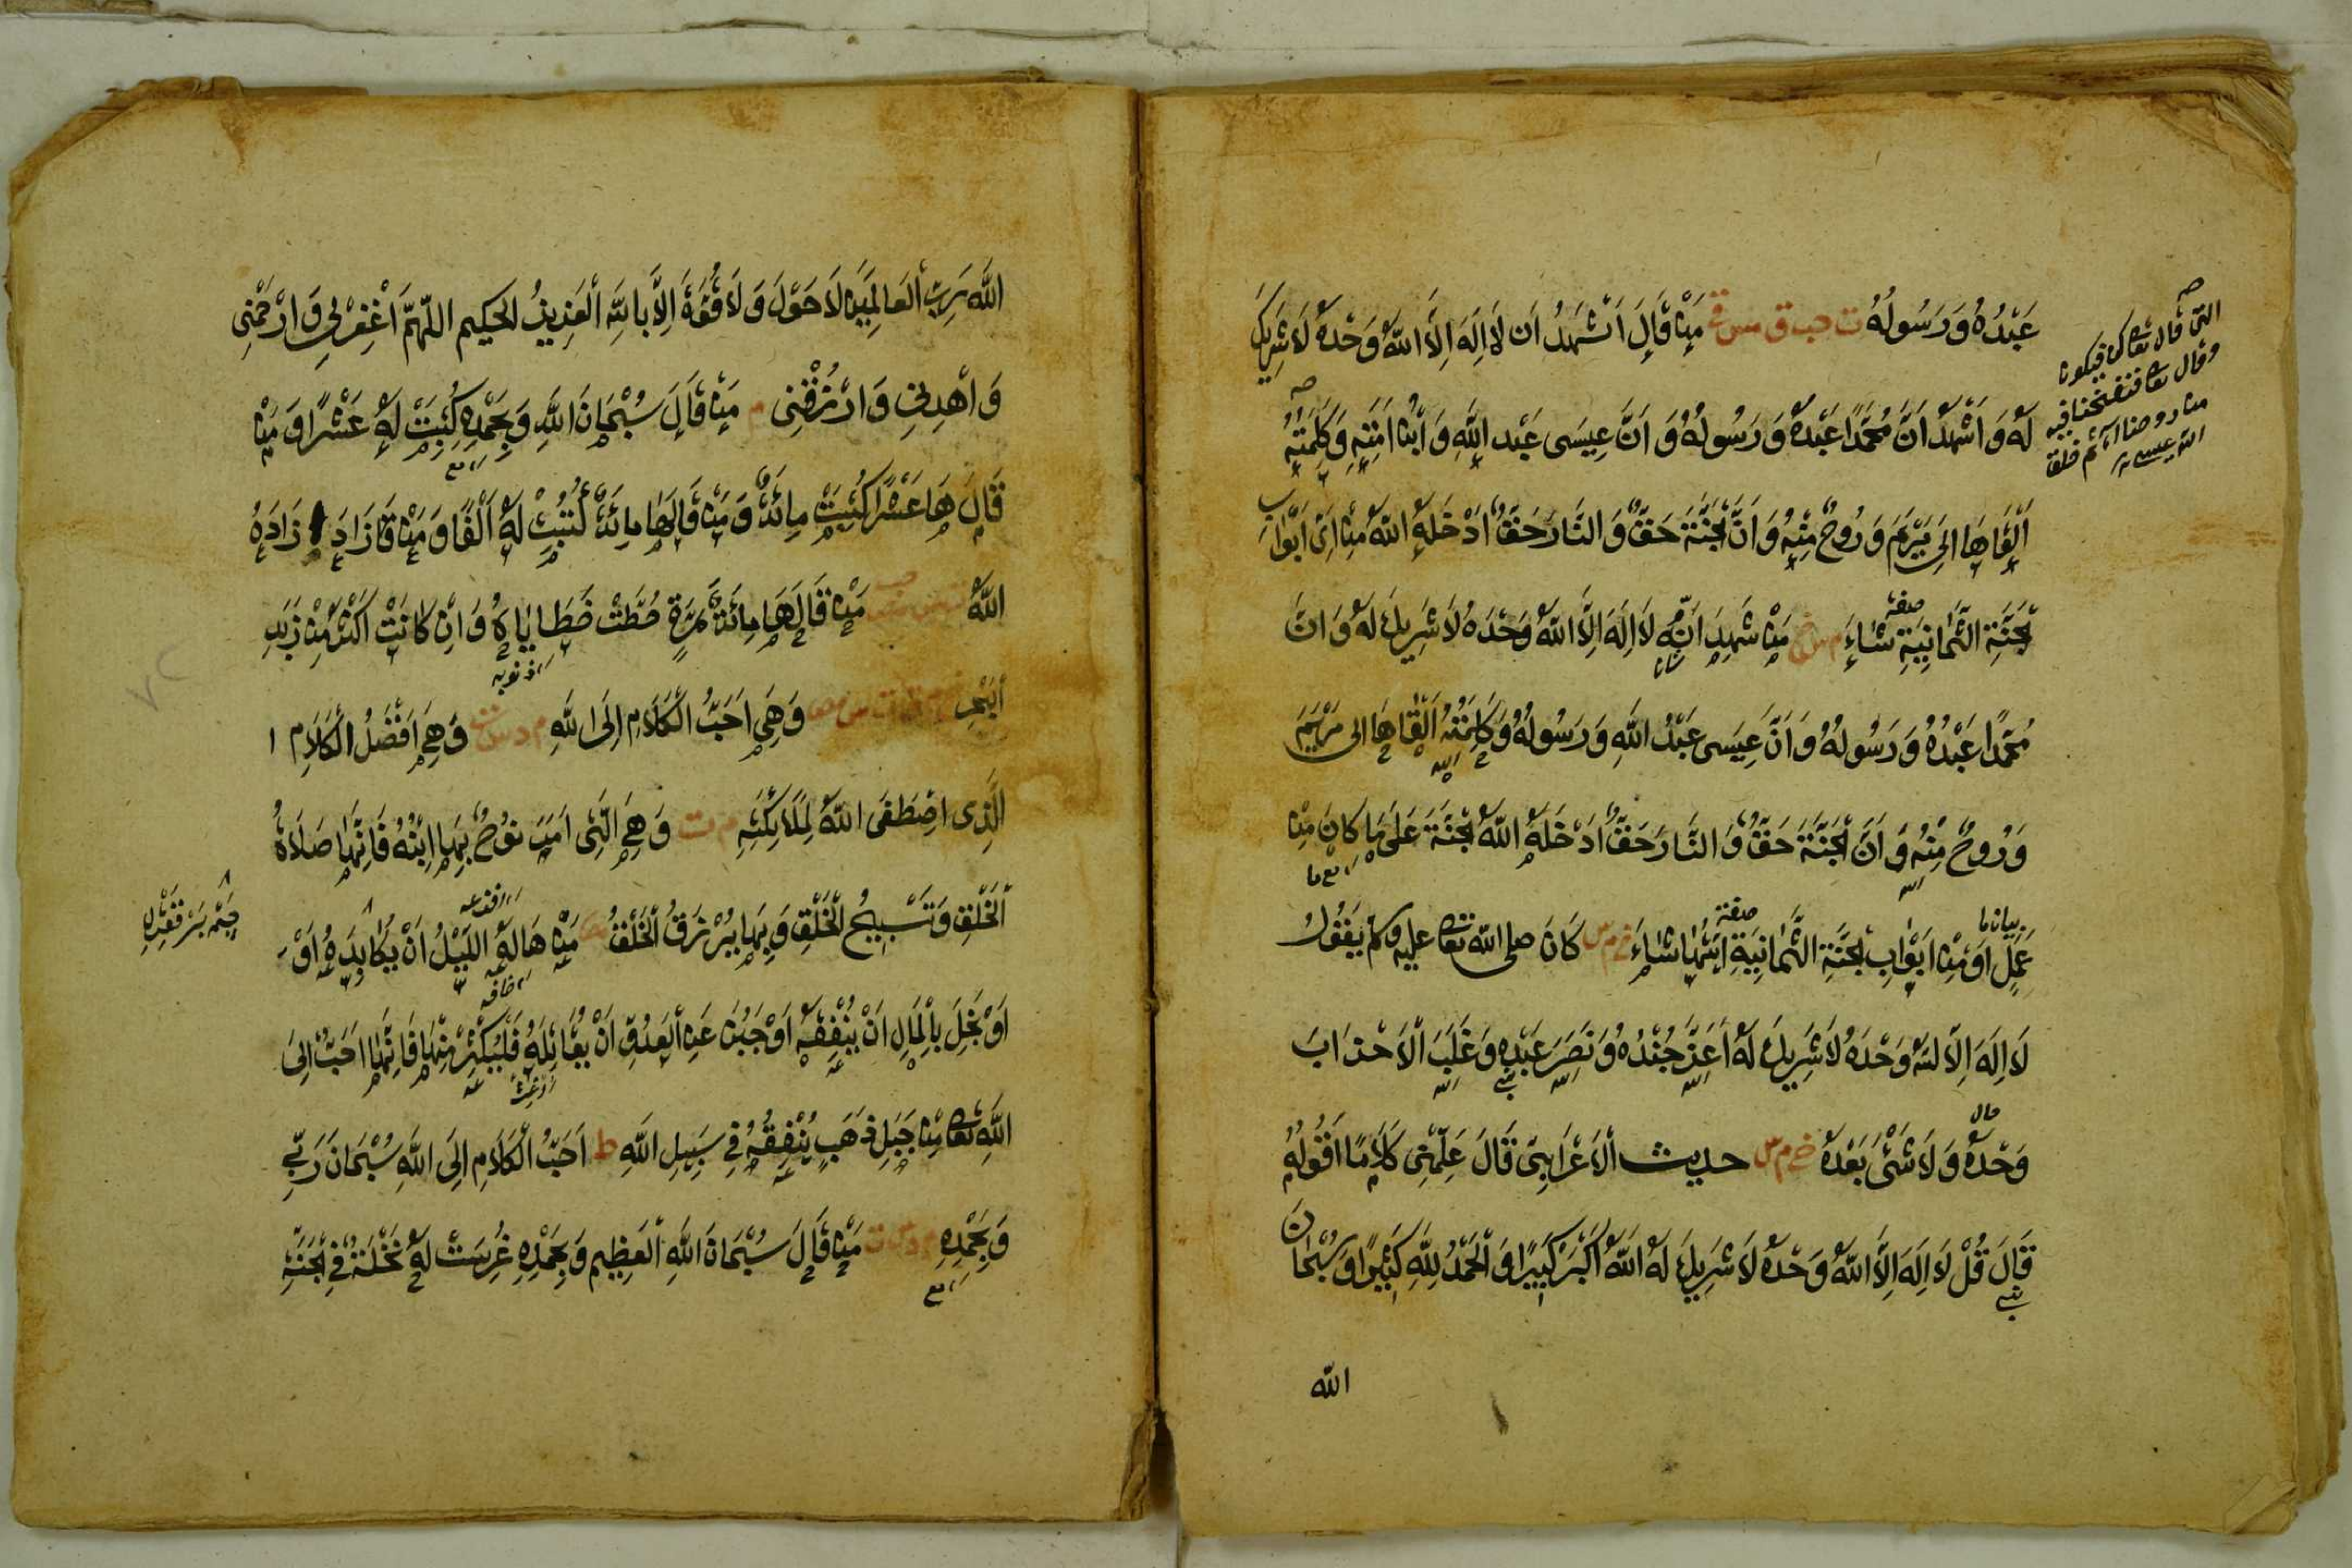 عَبْدُهُ وَرَسُولُهُ ت حب ق مس مَنْ قَالَ اَشْهَدُ اَن لَا اِلَهَ اِلَّا اللهُ وَحْدَهُ لَا شَرِيكَ
لَهُ وَ اَشْهَدُ اَنَّ مُحَمَّدًا عَبْدُهُ وَ رَسُولُهُ وَ اَنَّ عِيسَى عَبْد اللهِ وَ ابْنُ اَمَتِهِ وَكَلِمَتُهُ
اَلْقَاهَا اِلَى مَرْيَمَ وَ رُوحٌ مِنْهُ وَ اَنَّ الْجَنَّةَ حَقٌّ وَ النَّارَ حَقٌّ اَدْخَلَهُ اللهُ مِنْ اَىِّ اَبْوَابِ
الْجَنَّةِ الثَّمَانِيَةِ شَاءَ مَنْ شَهِدَ اَنَّهُ لَا اِلَهَ اِلَّا اللهُ وَحْدَهُ لَا شَرِيكَ لَهُ وَ اَنَّ
مُحَمَّدًا عَبْدُهُ وَ رَسُولُهُ وَ اَنَّ عِيسَى عَبْدُ اللهِ وَ رَسُولُهُ وَكَلِمَتُهُ اَلْقَاهَا الى مَرْيَمَ
وَ رُوحٌ مِنْهُ وَ اَنَّ الْجَنَّةَ حَقٌّ وَ النَّارَ حَقٌّ اَدْخَلَهُ اللهُ الْجَنَّةَ عَلَى مَا كَانَ مِنْ
عَمَلٍ اَوْ مِنْ اَبْوَابِ الْجَنَّةِ الثَّمَانِيَةِ اَيِّهَا شَاءَ خ م س كَانَ صلى الله تعا عليه وسلم يَقُولُ
لَا اِلَهَ اِلَّا اللهُ وَحْدَهُ لَا شَرِيكَ لَهُ اَعَزَّ جُنْدَهُ وَ نَصَرَ عَبْدَهُ وَ غَلَبَ الْاَحْزَابَ
وَحْدَهُ وَ لَا شَىْءَ بَعْدَهُ خ م س حديث الْاَعْرَابِىِّ قَالَ عَلِّمْنِى كَلَامًا اَقُولُهُ
قَالَ قُلْ لَا اِلَهَ اِلَّا اللهُ وَحْدَهُ لَا شَرِيكَ لَهُ اللهُ اَكْبَرُ كَبِيرًا وَ الْحَمْدُ لِلّهِ كَثِيرًا وَ سُبْحَانَ
الله
اللهِ رَبِّ الْعَالَمِينَ لَا حَوْلَ وَ لَا قُوَّةَ اِلَّا بِاللهِ الْعَزِيزِ الْحَكِيم اللّهُمَّ اغْفِرْ لِى وَ ارْحَمْنِى
وَ اهْدِنِى وَ ارْزُقْنِى م مَنْ قَالَ سُبْحَانَ اللهِ وَ بِحَمْدِهِ كُتِبَتْ لَهُ عَشْرًا وَ مَنْ
قَالَهَا عَشْرًا كُتِبَتْ مِائَةً وَ مَنْ قَالَهَا مِائَةً كُتِبَتْ لَهُ اَلْفًا وَ مَنْ زَادَ زَادَهُ
اللهُ مَنْ قَالَهَا مِائَةَ مَرَّةٍ حُطَّتْ خَطَايَاهُ وَ اِنْ كَانَتْ اَكْثَرَ مِنْ زَبَدِ
الْبَحْرِ وَهِىَ اَحَبُّ الْكَلَامِ اِلَى اللهِ م وَهِىَ اَفْضَلُ الْكَلَامِ ا
الَّذِى اصْطَفَى اللهُ لِمَلَائِكَتِهِ م ت وَهِىَ الَّتِى اَمَرَ نُوحٌ بِهَا ابْنَهُ فَاِنَّهَا صَلَاةُ
الْخَلْقِ وَ تَسْبِيحُ الْخَلْقِ وَ بِهَا يُرْزَقُ الْخَلْقُ مَنْ هَالَهُ اللَّيْلُ اَنْ يُكَابِدَهُ اَوْ
اَوْ بَخِلَ بِالْمَالِ اَنْ يُنْفِقَهُ اَوْ جَبُنَ عَنِ الْعَدُوِّ اَنْ يُقَاتِلَهُ فَلْيُكْثِرْ مِنْهَا فَاِنَّهَا اَحَبُّ اِلَى
اللهِ تعا مِنْ جَبَلِ ذَهَبٍ يُنْفِقُهُ فِى سَبِيلِ اللهِ ط اَحَبُّ الْكَلَامِ اِلَى اللهِ سُبْحَانَ رَبِّى
وَ بِحَمْدِهِ مَنْ قَالَ سُبْحَانَ اللهِ الْعَظِيمِ وَ بِحَمْدِهِ غُرِسَتْ لَهُ نَخْلَةٌ فِى الْجَنَّةِ